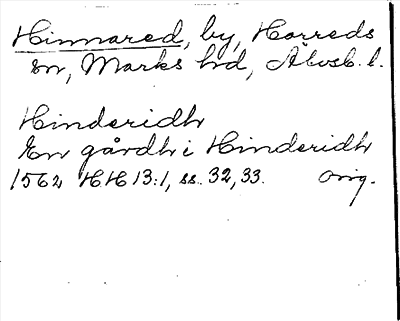 Hinnared, by, Horreds
sn, Marks hd, Älvsb. l.
Hinderidh
En gårdh i Hinderidh
1562 HH 13:1, ss. 32, 33. Orig.